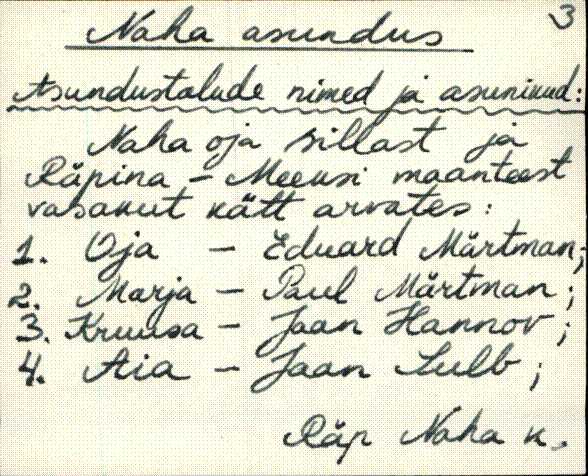 3
Naha asundus
Asundustalude nimed ja asunikud:
Naha oja sillast ja
Räpina - Meeksi maanteest
vasakut kätt arvates:
1. Oja - Eduard Märtman;
2. Marja - Paul Märtman;
3. Kruusa - Jaan Hannov;
4. Aia - Jaan Sulb;
Räp Naha k.